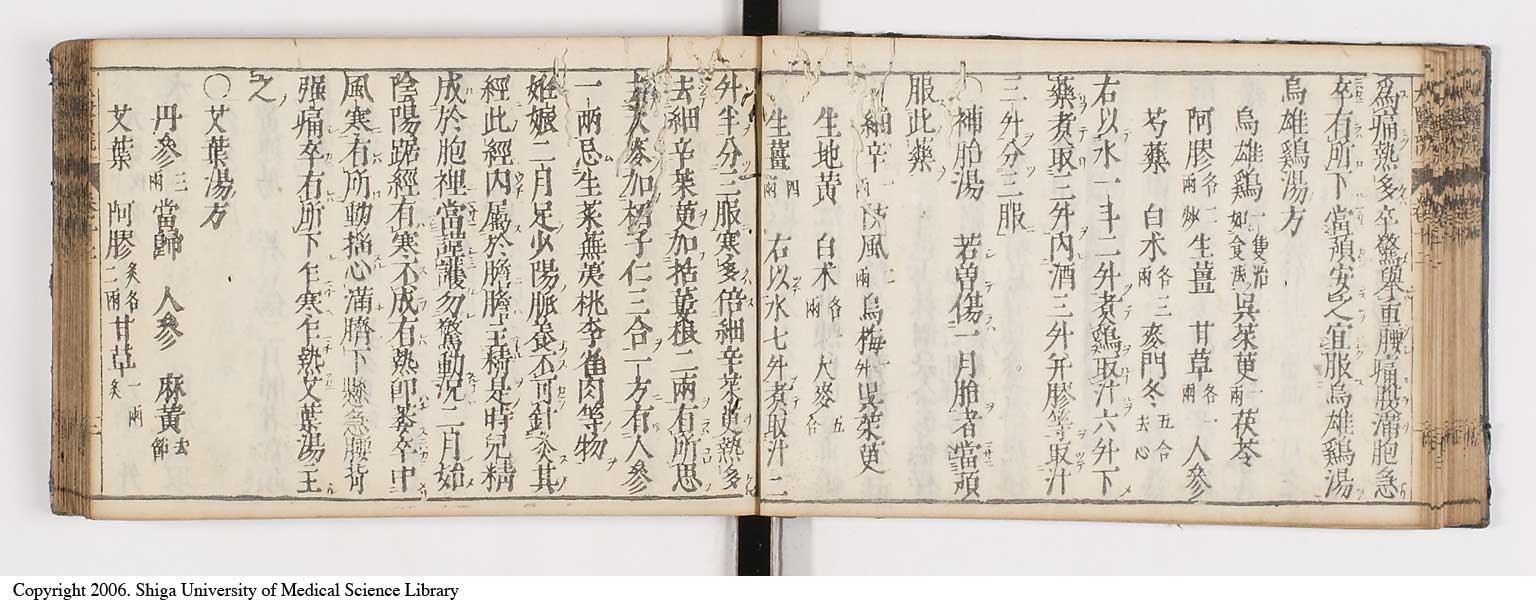 為痛熱多卒驚舉重腰痛腹滿胞急
卒有所下當預安之宜服烏雄鷄湯
烏雄鷄湯方
烏雄鷄一隻治如食法 吳茱萸一兩 茯苓
阿膠各二兩炒 生薑 甘草各一兩 人參
芍藥 白朮各三兩 麥門冬五合去心
右以水一斗二升煮鷄取汁六升下
藥煮取三升內酒三升并膠等取汁
三升分三服
○補胎湯 若曾傷一月胎者當預
服此藥
細辛一兩 防風二兩 烏梅升 吳茱萸
生地黃 白朮各兩 大麥五合
生薑四兩 右以水七升煮取汁二
升半分三服寒多倍細辛茱萸熱多
去細辛茱萸加栝蔞根二兩有所思
去大麥加栢子仁三合一方有人參
一兩忌生菜蕪荑桃李雀肉等物
姙娠二月足少陽脈養不可針灸其
經此經內屬於膽膽主精是時兒精
成於胞裡當謹護勿驚動況二月始
陰陽踞經有寒不成有熱卽萎卒中
風寒有所動搖心滿臍下懸急腰背
强痛卒有所下乍寒乍熱艾葉湯主
之
○艾葉湯方
丹參三兩 當歸 人參 麻黃去節
艾葉 阿膠炙各二兩 甘草一兩炙
Copyright 2006. Shiga University of Medical Science Library